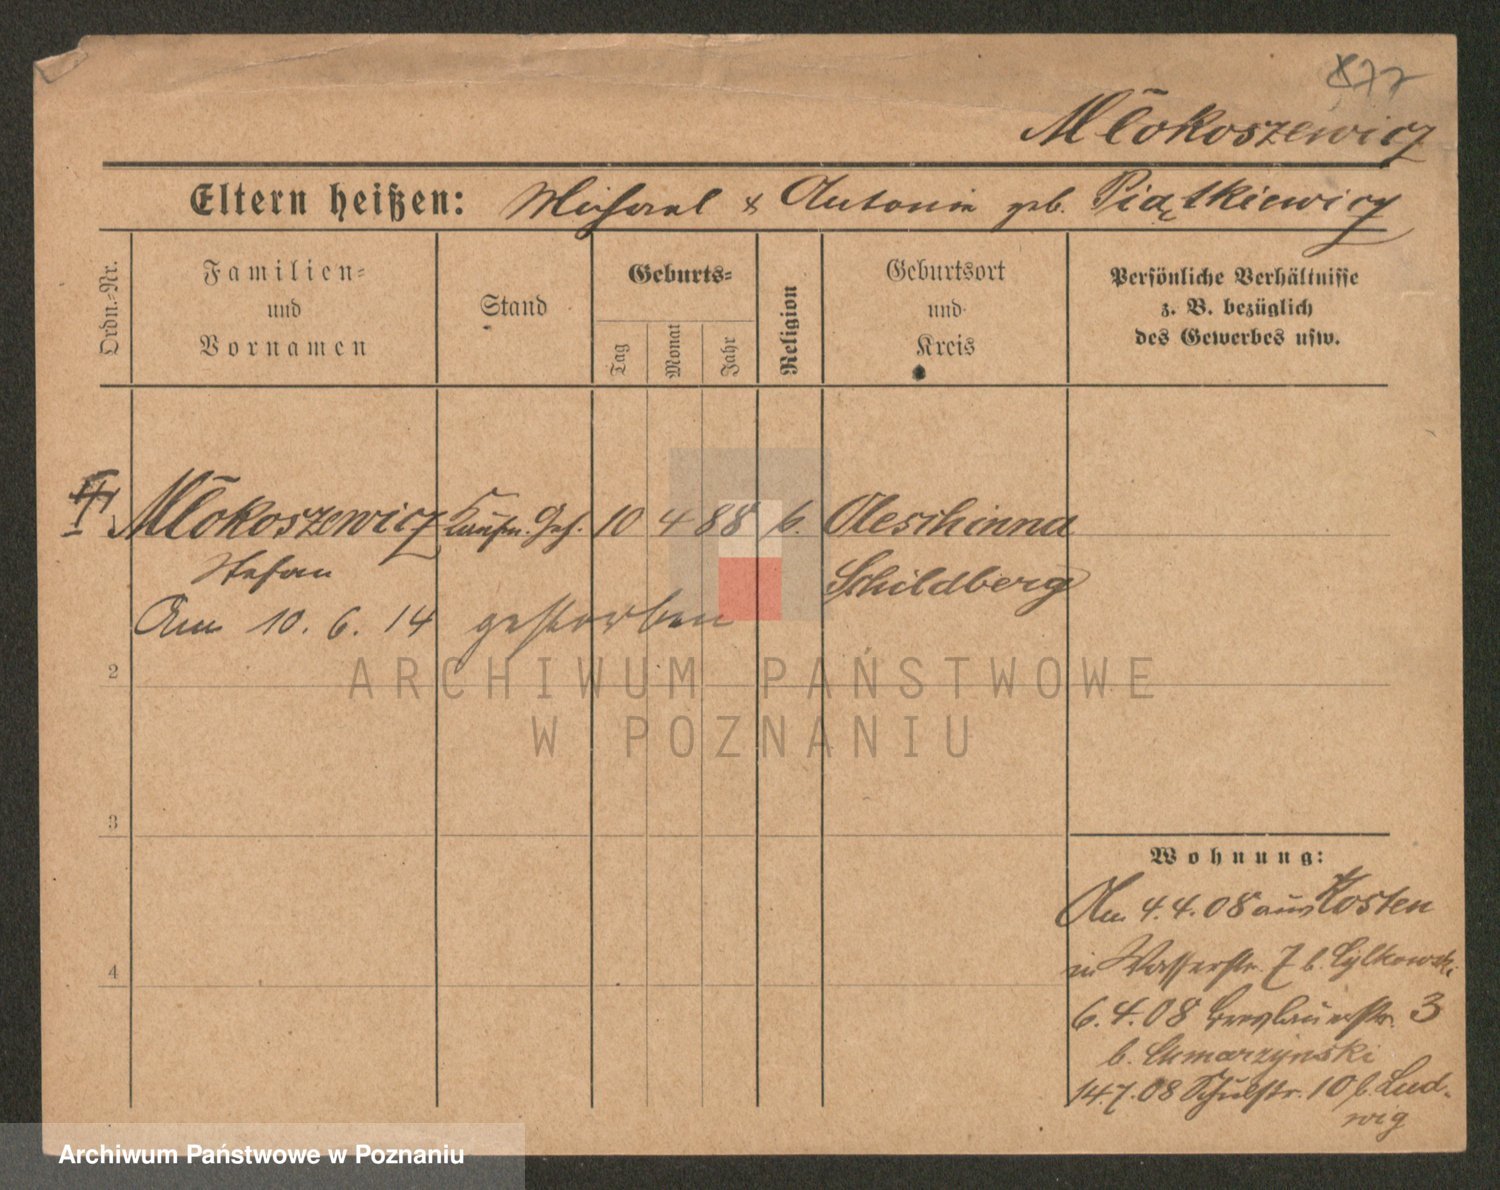 877
Młokoszewicz
Eltern heißen: Michael & Antonie geb. Piątkiewicz
Ordn.-Nr.
Familien-
und
Vornamen
Stand
Geburts-
Tag
Monat
Jahr
Religion
Geburtsort
und
Kreis
Persönliche Verhältnisse
z. B. bezüglich
des Gewerbes usw.
Młokoszewicz Kaufm. Geh. 10 4 88 k. Oleschinna
Stefan Schildberg
Am 10. 6. 14 gestorben
2
3
4
Wohnung:
Am 4.4.08 aus Kosten
in Wasserstr. 7 b. Cylkowski
6.4.08 Breslauerstr. 3
b.
14.7.08 Schulstr. 10 b. Lud-
wig
ARCHIWUM PAŃSTWOWE
W POZNANIU
Archiwum Państwowe w Poznaniu